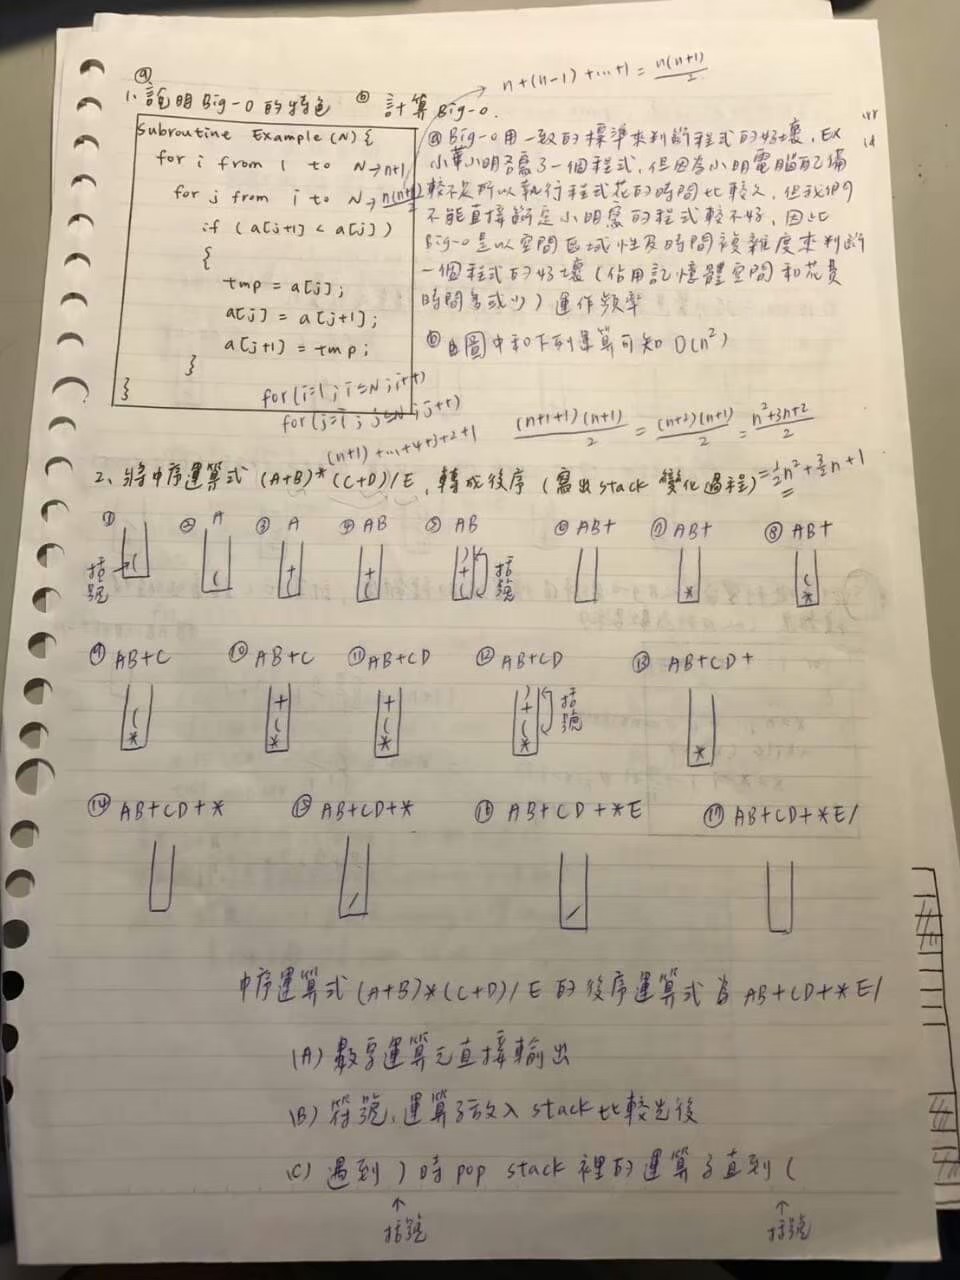 n+(n-1)+...+1 = n(n+1)/2
(a)
1. 說明Big-O的特色 ⓑ 計算Big-O.
Subroutine Example(N){
for i from 1 to N→n+1
for j from i to N→n(n+1)/2
if (a[j+1] < a[j])
{
tmp = a[j];
a[j] = a[j+1];
a[j+1] = tmp;
}
}
for(i=1; i≤N; i++)
for(j=i; j≤N; j++)
ⓐ Big-O用一致的標準來判斷程式的好壞, EX
小華小明各寫了一個程式,但因為小明電腦配備
較不足所以執行程式花的時間比較久,但我們
不能直接斷定小明寫的程式較不好,因此
Big-O是以空間區域性及時間複雜度來判斷
一個程式的好壞(佔用記憶體空間和花費
時間多或少)運作頻率
ⓑ 由圖中和下列運算可知 O(n²)
(n+1)+...+4+3+2+1
(n+1+1)(n+1)/2 = (n+2)(n+1)/2 = n²+3n+2/2
= 1/2n²+3/2n+1
2、將中序運算式 (A+B)*(C+D)/E, 轉成後序 (寫出stack 變化過程)
① ② A ③ A ④ AB ⑤ AB ⑥ AB+ ⑦ AB+ ⑧ AB+
括號→ ( ( + ( + ( ) + ( 括號 * ( *
⑨ AB+C ⑩ AB+C ⑪ AB+CD ⑫ AB+CD ⑬ AB+CD+
( * + ( * + ( * ) + ( * 括號 *
⑭ AB+CD+* ⑮ AB+CD+* ⑯ AB+CD+*E ⑰ AB+CD+*E/
/ /
中序運算式(A+B)*(C+D)/E的後序運算式為 AB+CD+*E/
(A) 數字運算元直接輸出
(B) 符號、運算子放入 stack 比較先後
(C) 遇到 ) 時 pop stack 裡的運算子直到 (
↑ ↑
括號 括號